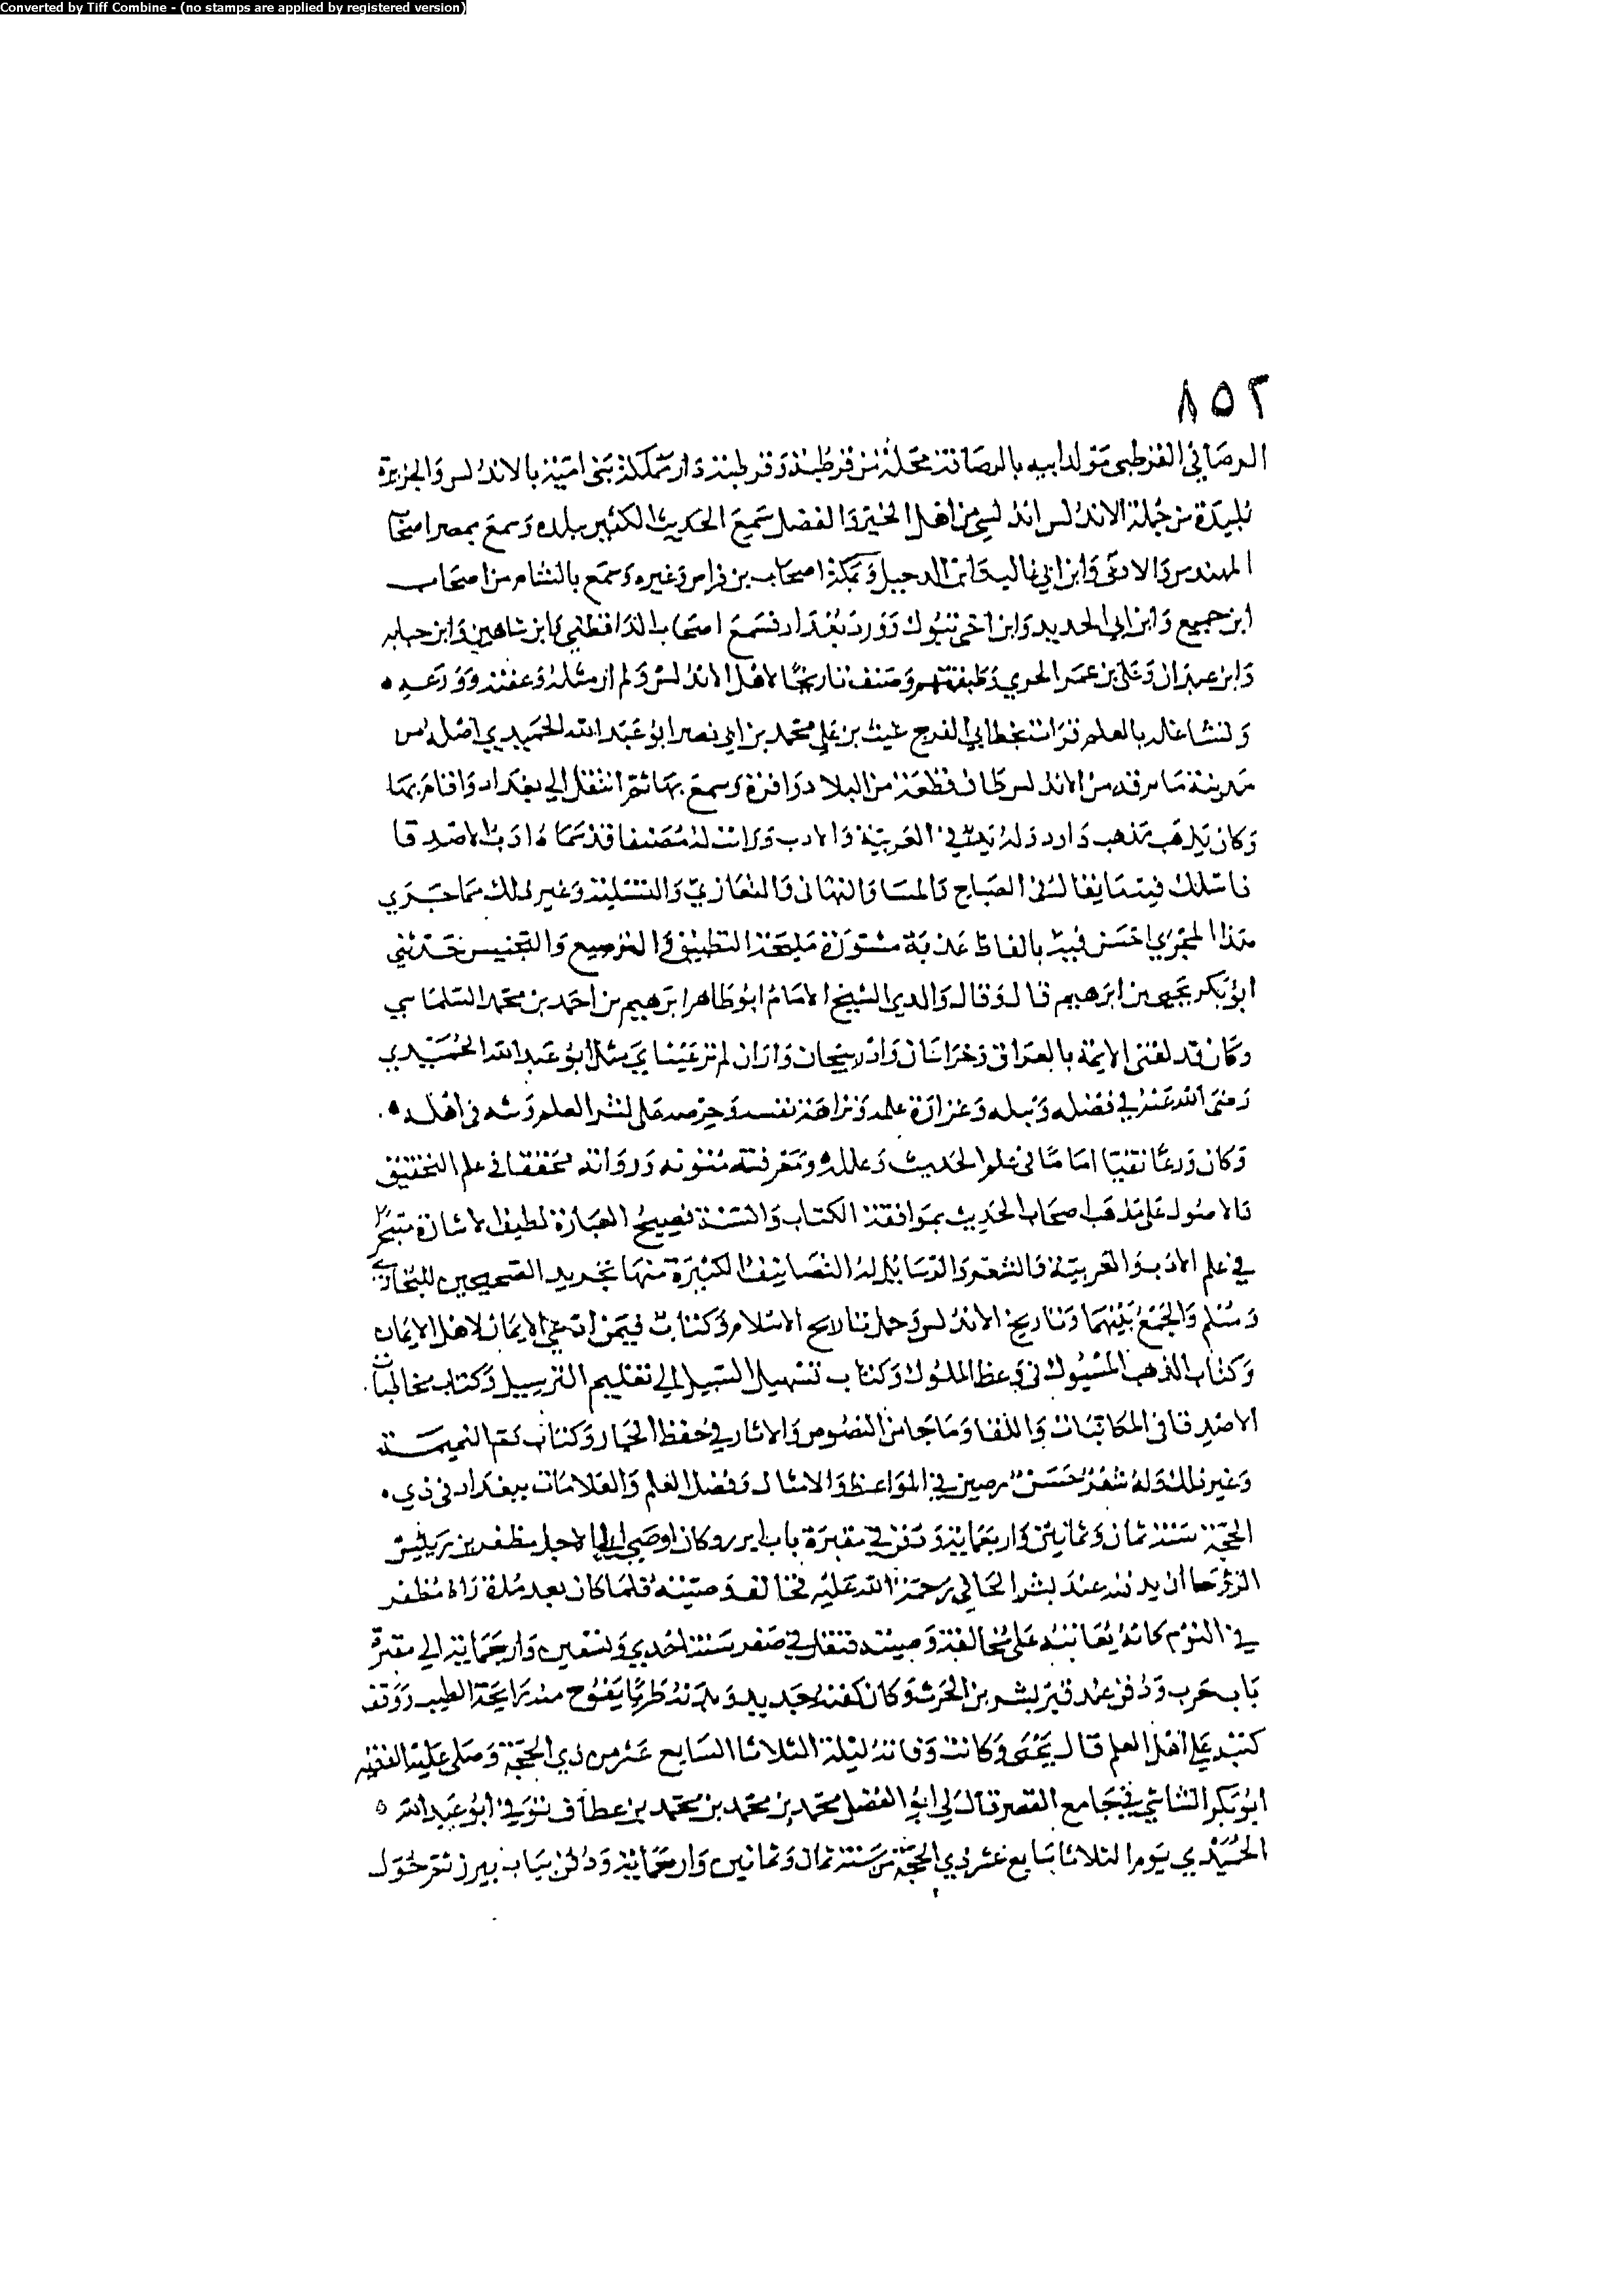 Converted by Tiff Combine - (no stamps are applied by registered version)
٨٥٢
الرصافي القرطبي مولد ابيه بالرصافة محلة من قرطبة وقرطبة دار مملكة بني امية بالاندلس والجزيرة
بليدة من جملة الاندلس اندلسي من اهل الخير والفضل سمع الحديث الكثير ببلده وسمع بمصر اصحاب
المهندس والادمي وابن ابي غالب وابن الدجيل وبمكة اصحاب بن فراس وغيره وسمع بالشام من اصحاب
ابن جميع وابن ابي الحديد وابن اخي تبوك وورد بغداد فسمع اصحاب الدارقطني وابن شاهين وابن حبابه
وابن عبدان وعلي بن عمر الحربي وطبقتهم وصنف تاريخا لاهل الاندلس ولم ار مثله في عفته وورعه
وتشاغله بالعلم قرات بخط ابي الفرج غيث بن علي محمد بن ابي نصر ابو عبد الله الحميدي اصله من
مدينة مايرقه من الاندلس طاف قطعة من البلاد وافرة وسمع بها ثم انتقل الي بغداد واقام بها
وكان يذهب مذهب داود وله يد في العربية والادب ورايت له مصنفا قد سماه ادب الاصدقا
فاسلك فيه ما يقال في الصباح والمسا والتهاني والتعازي والتسلية وغير ذلك مما جري
هذا المجري احسن فيه بالفاظ عذبة مستوزة مليحة التطبيق والترصيع والتجنيس حدثني
ابو بكر يحيي بن ابرهيم قال قال والدي الشيخ الامام ابو طاهر ابرهيم بن احمد بن محمد السلماسي
وكان قد لقي الايمة بالعراق وخراسان واذربيجان واران لم تر عيناي مثل ابو عبد الله الحميدي
رضي الله عنه في فضله ونبله وغزارة علمه ونزاهة نفسه وحرصه علي نشر العلم وبثه في اهله
وكان ورعا تقيا اماما في علم الحديث وعلله ومعرفة متونه ورواته محققا في علم التحقيق
والاصول علي مذهب اصحاب الحديث بموافقة الكتاب والسنة فصيح العبارة لطيف الاشارة متبحرا
في علم الادب والعربية والشعر والرسايل له التصانيف الكثيرة منها تجريد الصحيحين للبخاري
ومسلم والجمع بينهما وتاريخ الاندلس وجمل تاريخ الاسلام وكتاب فيمن ادعي الايمان لاهل الايمان
وكتاب الذهب المسبوك في وعظ الملوك وكتاب تسهيل السبيل الي تعليم الترسيل وكتاب مخاطبات
الاصدقا في المكاتبات واللقا وما جا من النصوص والاثار في حفظ الجار وكتاب ذم النميمة
وغير ذلك وله شعر حسن رصين في المواعظ والامثال وفضل العلم والعلامات ببغداد في ذي
الحجة سنة ثمان وثمانين واربعماية ودفن في مقبرة باب ابرز وكان اوصي الي الاجل مظفر بن رييس
الروسا ان يدفنه عند بشر الحافي رحمة الله عليه فخالف وصيته فلما كان بعد مدة راه مظفر
في النوم كانه يعاتبه علي مخالفة وصيته فنقل في صفر سنة احدي وتسعين واربعماية الي مقبرة
باب حرب ودفن عند قبر بشر بن الحرث وكان كفنه جديد وبدنه طريا يفوح منه رايحة الطيب ووقف
كتبه علي اهل العلم قال يحيي وكانت وفاته ليلة الثلاثا السابع عشر من ذي الحجة وصلي عليه الفقيه
ابو بكر الشاشي في جامع القصر قال لي ابو الفضل محمد بن محمد بن محمد بن عطاف توفي ابو عبد الله
الحميدي يوم الثلاثا سابع عشر ذي الحجة من سنة ثمان وثمانين واربعماية ودفن بباب بيرز ثم حول